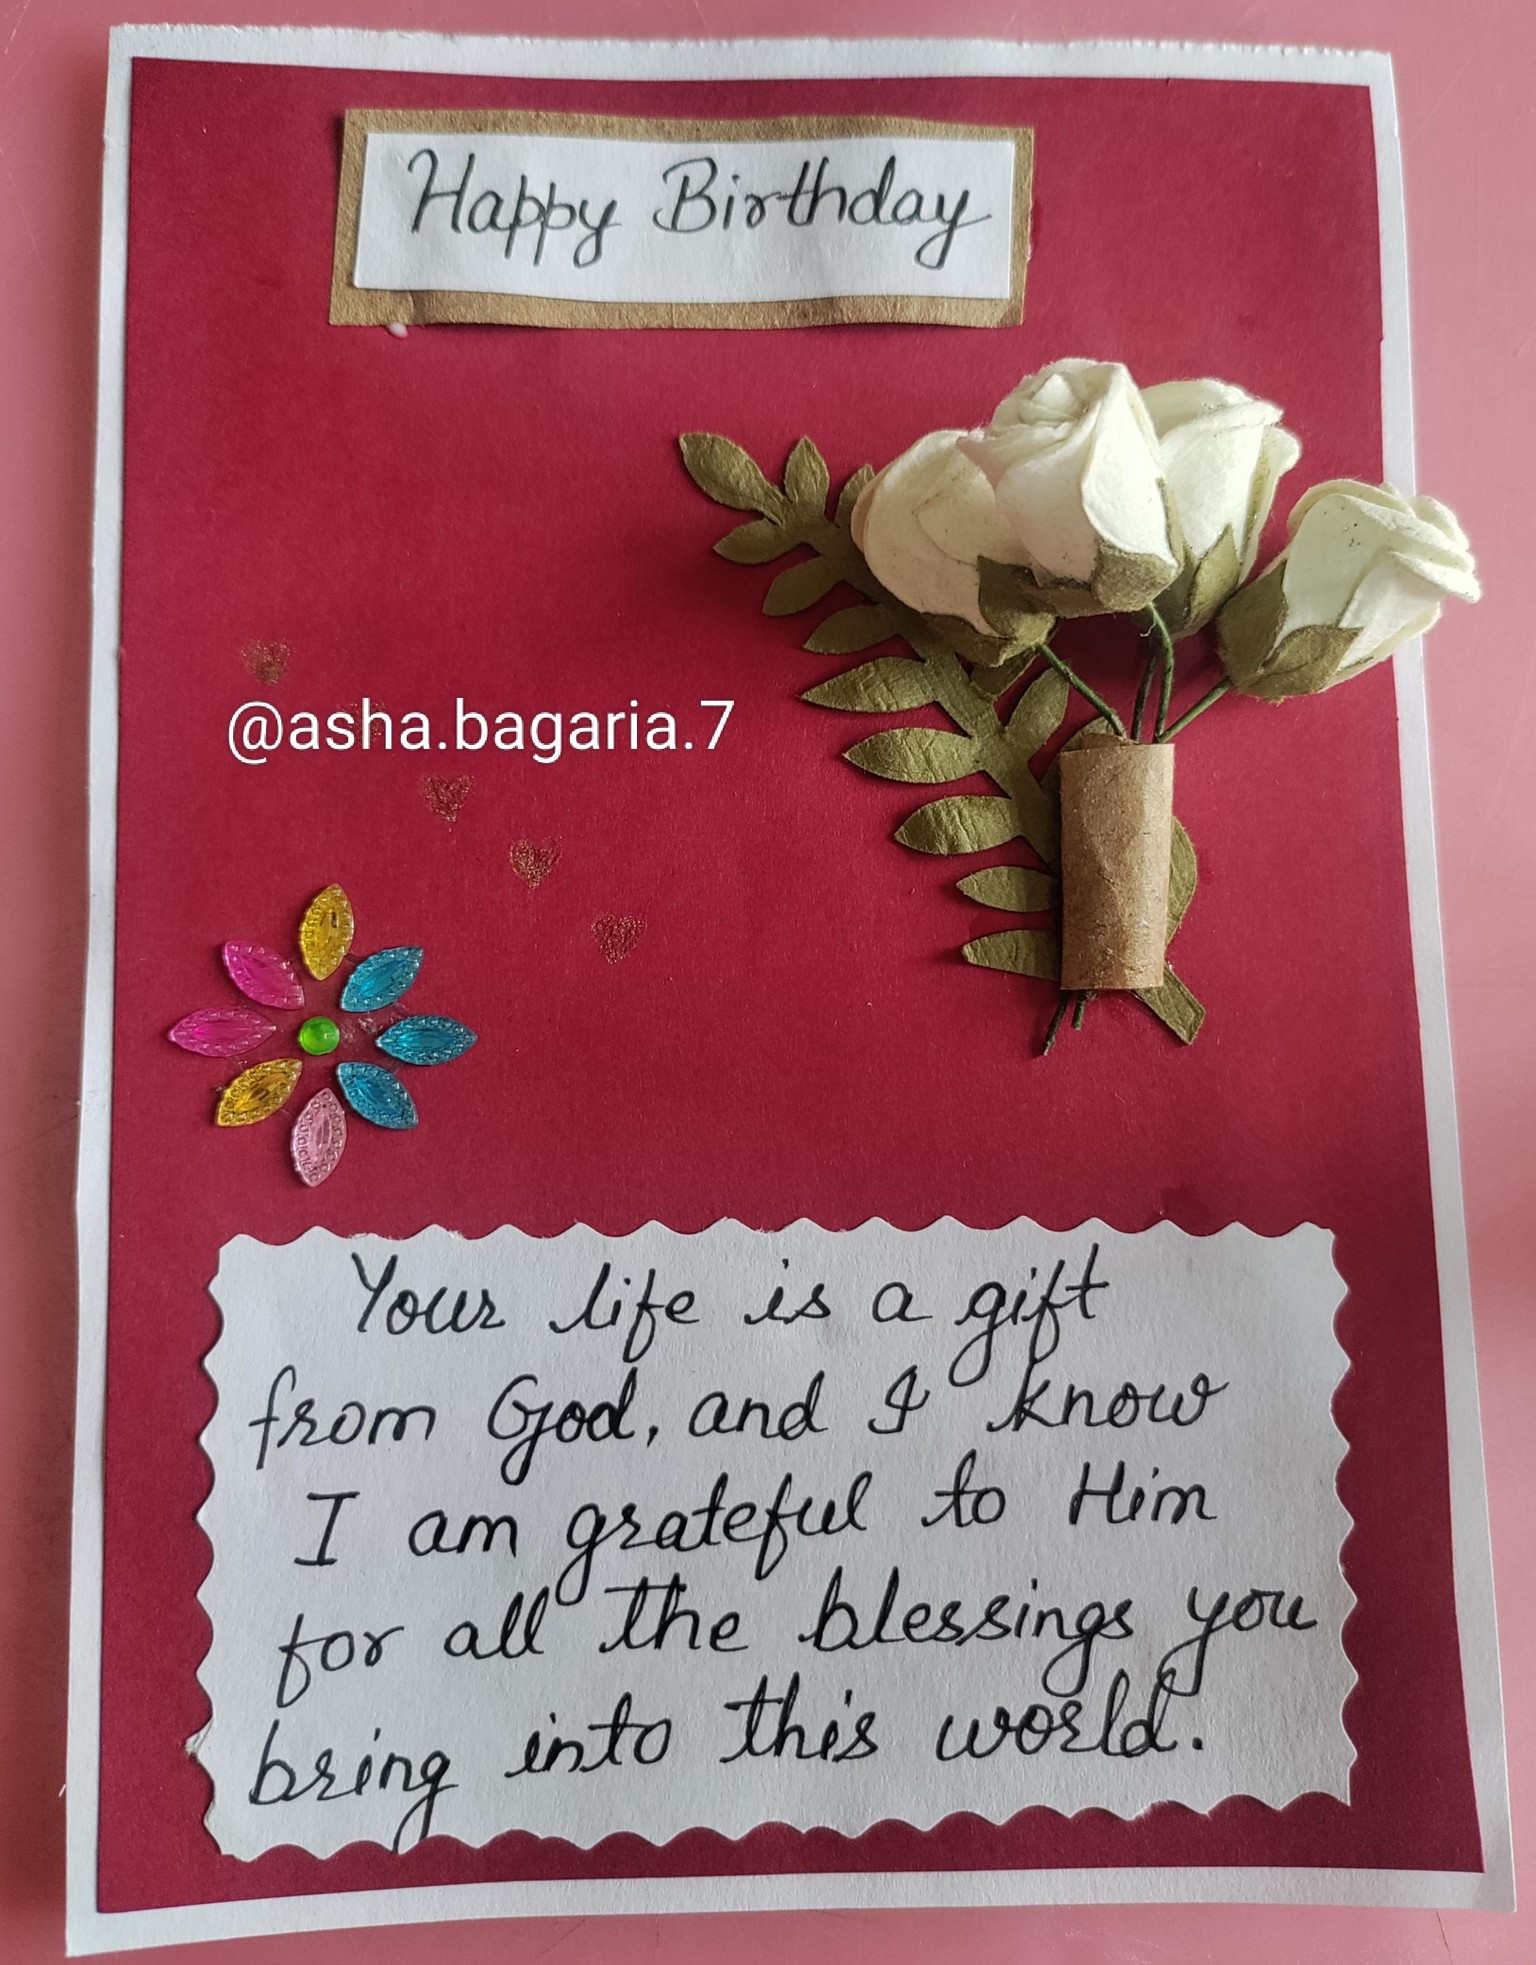 Happy Birthday
@asha.bagaria.7
Your life is a gift
from God, and I know
I am grateful to Him
for all the blessings you
bring into this world.